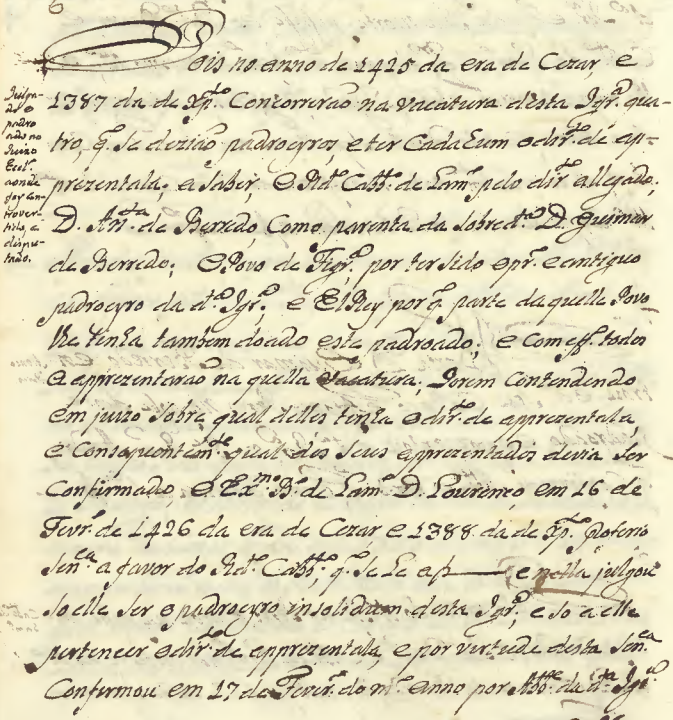 6
Pois no anno de 1425 da era de Cezar, e
1387 da de Xp.^to Concorrerão na vacatura desta Igr.^a qua-
tro, q. se dezião padroeyros, e ter Cada hum o dir.^to de ap-
prezentala; a saber, O R.^do Cabb.^o de Lam.^o pelo dir.^to allegado;
D. An.^ta de Berredo, Como parenta da sobred.^a D. Guimar
de Berredo; O Povo de Figr.^a por ter sido o pr.^o e antiguo
padroeyro da d.^ta Igr.^a, e El Rey por q. parte daquelle Povo
lhe tinha tambem doado este padroado; e com eff.^to todos
a apprezentarão naquella vacatura; Porem Contendendo
em juizo sobre qual delles tinha o dir.^to de apprezentala,
e Consequentem.^te qual dos seus apprezentados devia ser
Confirmado, O Ex.^mo B.^o de Lam.^o D. Lourenço em 16 de
Fevr.^o de 1426 da era de Cezar e 1388 da de Xp.^to proferio
sen.^ca a favor do R.^do Cabb.^o, q. se le a f. — e nella julgou
so elle ser o padroeyro insolidum desta Igr.^a, e so a elle
pertencer o dir.^to de apprezentala, e por virtude desta sen.^ca
Confirmou em 17 de Fever.^o do m.^o anno por Abb.^e da d.^ta Igr.^a
Julga-
do o
padro
ado no
Juizo
Eccl.^o
aonde
foy con
trover
tido, e
dispu-
tado.